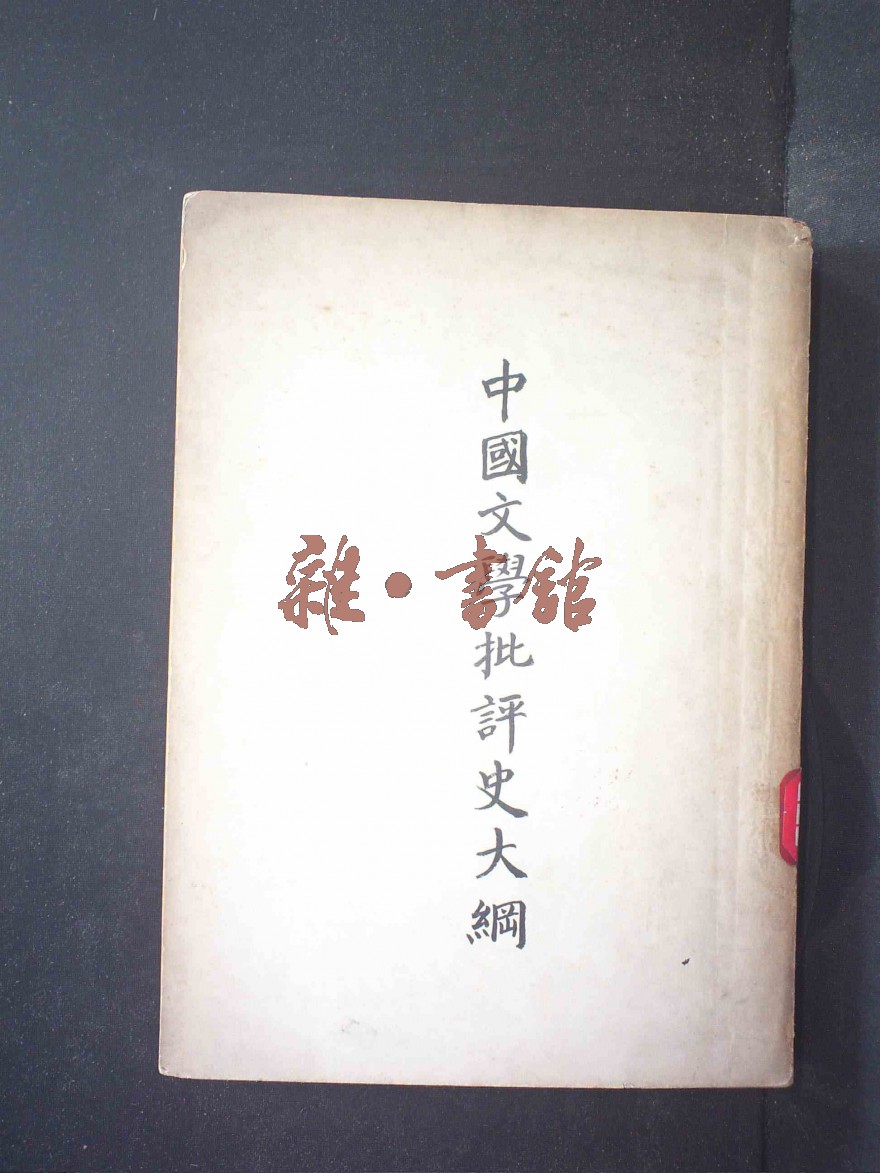 中國文學批評史大綱
雜·書館